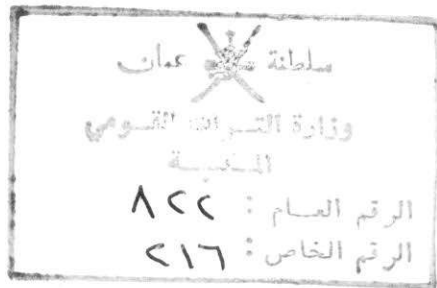 سلطنة عمان
وزارة التراث القومي
الرقم العام : ٨٢٢
الرقم الخاص : ٢١٦